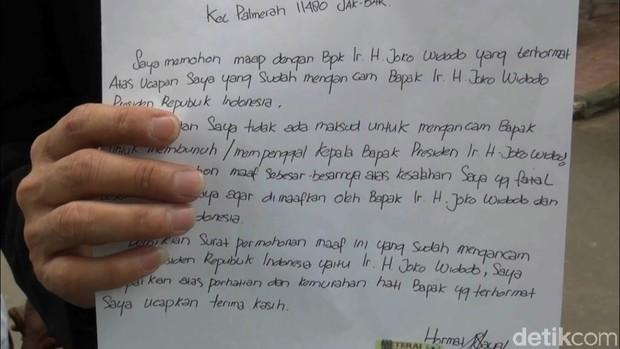 Kec Palmerah 11480 JAK-BAR.
Saya memohon maap dengan Bpk Ir. H. Joko Widodo yang terhormat
Atas Ucapan Saya yang Sudah mengancam Bapak Ir. H. Joko Widodo
Presiden Republik Indonesia.
Saya tidak ada maksud untuk mengancam Bapak
untuk membunuh / mempenggal kepala Bapak Presiden Ir. H. Joko Widodo
maaf sebesar-besarnya atas kesalahan Saya yg fatal
Saya agar dimaafkan oleh Bapak Ir. H. Joko Widodo dan
Indonesia.
Demikian Surat permohonan maaf ini yang Sudah mengancam
Presiden Republik Indonesia yaitu Ir. H. Joko Widodo, Saya
atas perhatian dan kemurahan hati Bapak yg terhormat
Saya ucapkan terima kasih.
Hormat Saya
METERAI
detikcom